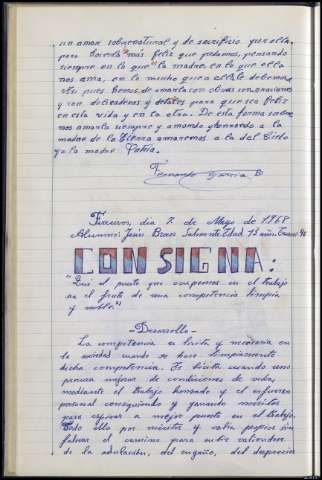 un amor sobrenatural y de sacrificio por ella,
para hacerla más feliz que podamos, pensando
siempre en lo que la madre, en lo que ella
nos ama, en lo mucho que a ella le debemos
Así pues hemos de amarla con obras, con oraciones
y con delicadezas y detalles para que sea feliz
en esta vida y en la otra. De esta forma
nos amarla siempre y amando y honrando a la
madre de la tierra amaremos a la del Cielo
y a la madre Patria.
Fernando García B
día 2 de Mayo de 1968
Alumno: Jesús Edad 15 años
CONSIGNA:
"Que el puesto que ocupemos en el trabajo
sea el fruto de una competencia limpia
y noble."
-Desarrollo-
La competencia es lícita y necesaria en
la sociedad cuando se hace limpiamente
dicha competencia. Es lícita cuando uno
procura mejorar de condiciones de vida,
mediante el trabajo honrado y el esfuerzo
personal consiguiendo y ganando méritos
para aspirar a mejor puesto en el trabajo.
Todo ello por méritos y valía propios sin
falsear el camino para subir valiéndose
de la adulación, del engaño, del desprecio